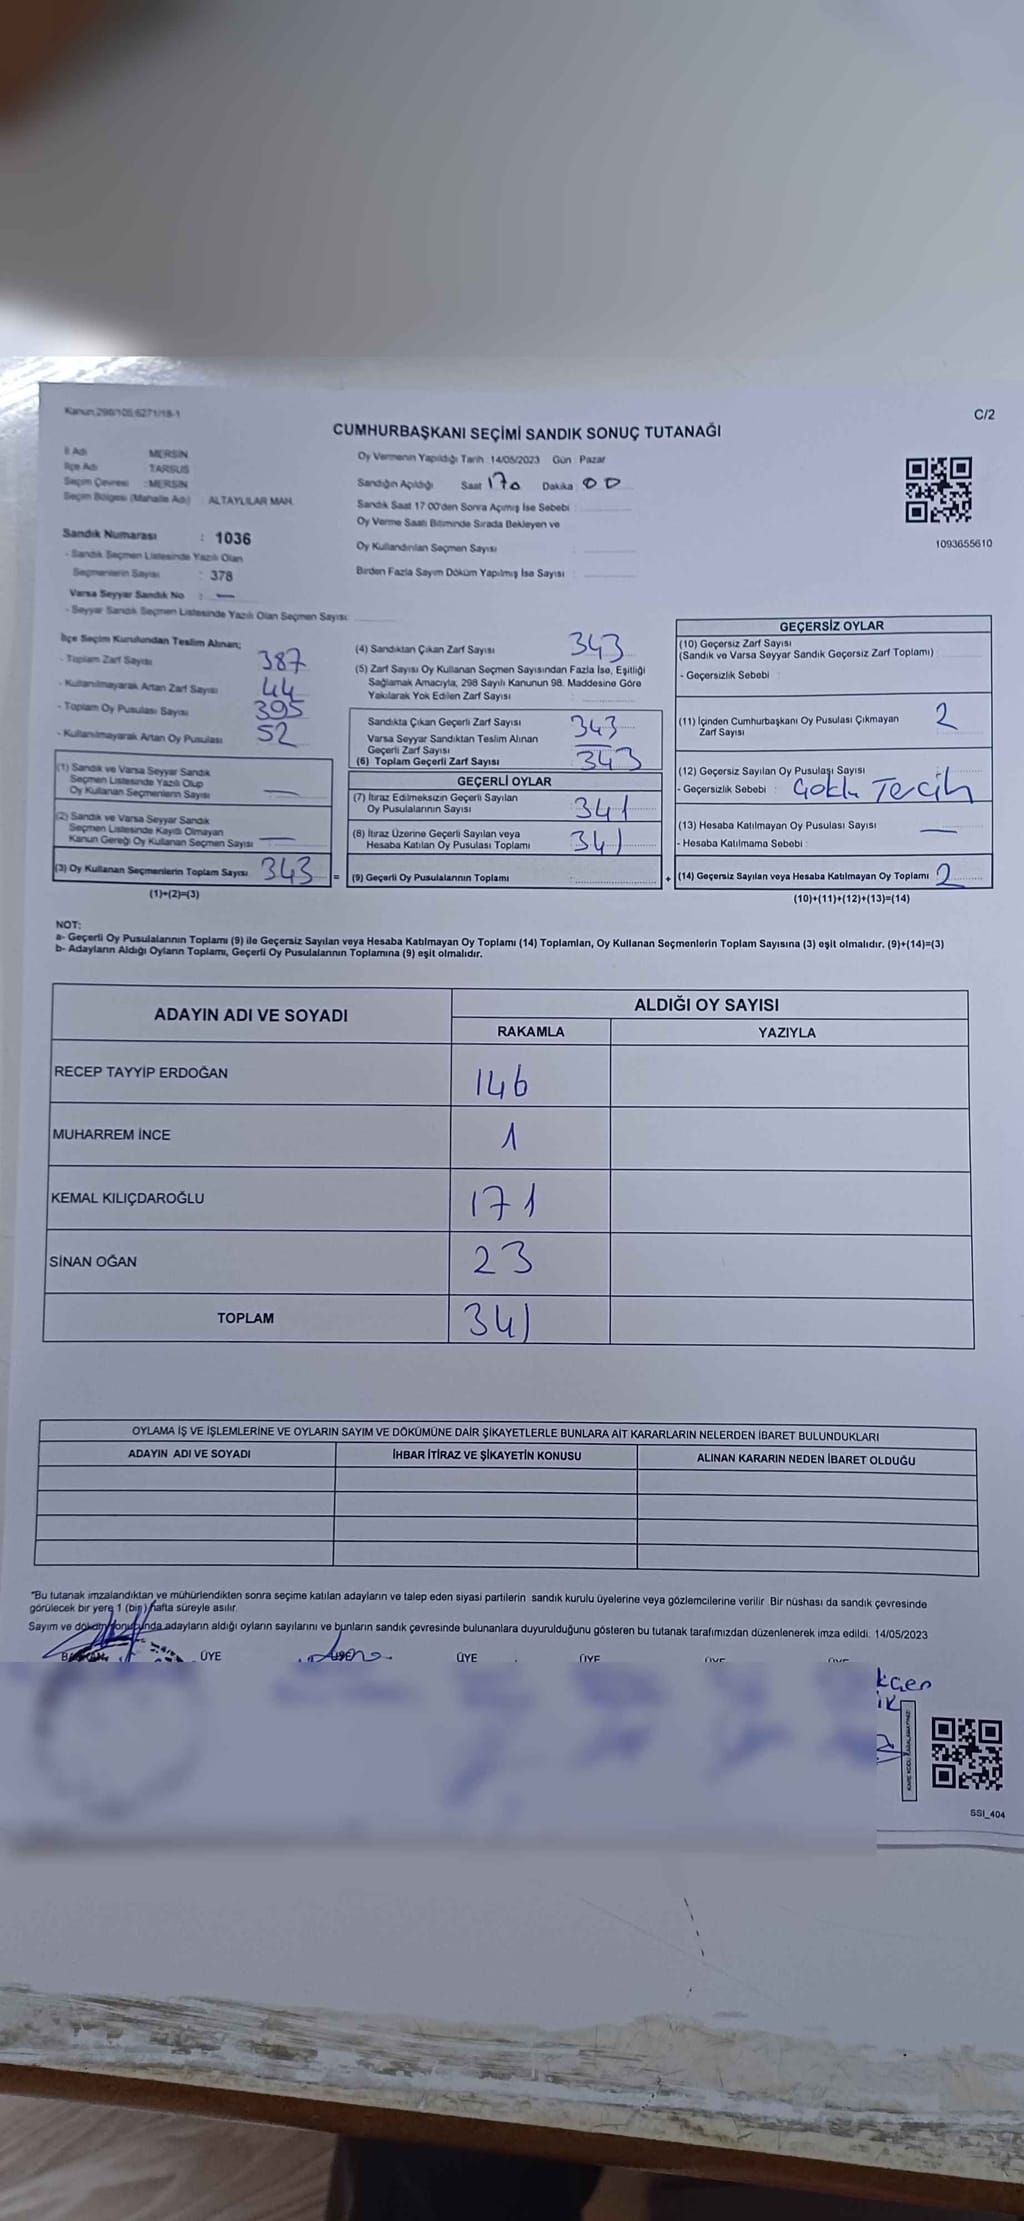 Kanun:298/105,6271/18-1
C/2
CUMHURBAŞKANI SEÇİMİ SANDIK SONUÇ TUTANAĞI
İl Adı MERSİN
İlçe Adı TARSUS
Seçim Çevresi : MERSİN
Seçim Bölgesi (Mahalle Adı) : ALTAYLILAR MAH.
Oy Vermenin Yapıldığı Tarih : 14/05/2023 Gün : Pazar
Sandığın Açıldığı Saat 17 Dakika 00
Sandık Saat 17:00'den Sonra Açımış İse Sebebi :
Oy Verme Saati Bitiminde Sırada Bekleyen ve
Oy Kullandırılan Seçmen Sayısı :
Birden Fazla Sayım Döküm Yapılmış İse Sayısı :
1093655610
Sandık Numarası : 1036
- Sandık Seçmen Listesinde Yazılı Olan
Seçmenlerin Sayısı : 378
Varsa Seyyar Sandık No : —
- Seyyar Sandık Seçmen Listesinde Yazılı Olan Seçmen Sayısı:
İlçe Seçim Kurulundan Teslim Alınan;
- Toplam Zarf Sayısı 387
- Kullanılmayarak Artan Zarf Sayısı 44
- Toplam Oy Pusulası Sayısı 395
- Kullanılmayarak Artan Oy Pusulası 52
(1) Sandık ve Varsa Seyyar Sandık
Seçmen Listesinde Yazılı Olup
Oy Kullanan Seçmenlerin Sayısı —
(2) Sandık ve Varsa Seyyar Sandık
Seçmen Listesinde Kayıtlı Olmayan
Kanun Gereği Oy Kullanan Seçmen Sayısı —
(3) Oy Kullanan Seçmenlerin Toplam Sayısı 343 =
(1)+(2)=(3)
(4) Sandıktan Çıkan Zarf Sayısı 343
(5) Zarf Sayısı Oy Kullanan Seçmen Sayısından Fazla İse, Eşitliği
Sağlamak Amacıyla, 298 Sayılı Kanunun 98. Maddesine Göre
Yakılarak Yok Edilen Zarf Sayısı
Sandıkta Çıkan Geçerli Zarf Sayısı 343
Varsa Seyyar Sandıktan Teslim Alınan
Geçerli Zarf Sayısı —
(6) Toplam Geçerli Zarf Sayısı 343
GEÇERLİ OYLAR
(7) İtiraz Edilmeksizin Geçerli Sayılan
Oy Pusulalarının Sayısı 341
(8) İtiraz Üzerine Geçerli Sayılan veya
Hesaba Katılan Oy Pusulası Toplamı 341
(9) Geçerli Oy Pusulalarının Toplamı : +
GEÇERSİZ OYLAR
(10) Geçersiz Zarf Sayısı
(Sandık ve Varsa Seyyar Sandık Geçersiz Zarf Toplamı) :
- Geçersizlik Sebebi :
(11) İçinden Cumhurbaşkanı Oy Pusulası Çıkmayan
Zarf Sayısı 2
(12) Geçersiz Sayılan Oy Pusulası Sayısı
- Geçersizlik Sebebi : Çoklu Tercih
(13) Hesaba Katılmayan Oy Pusulası Sayısı —
- Hesaba Katılmama Sebebi :
(14) Geçersiz Sayılan veya Hesaba Katılmayan Oy Toplamı 2
(10)+(11)+(12)+(13)=(14)
NOT:
a- Geçerli Oy Pusulalarının Toplamı (9) ile Geçersiz Sayılan veya Hesaba Katılmayan Oy Toplamı (14) Toplamları, Oy Kullanan Seçmenlerin Toplam Sayısına (3) eşit olmalıdır. (9)+(14)=(3)
b- Adayların Aldığı Oyların Toplamı, Geçerli Oy Pusulalarının Toplamına (9) eşit olmalıdır.
ADAYIN ADI VE SOYADI ALDIĞI OY SAYISI
RAKAMLA YAZIYLA
RECEP TAYYİP ERDOĞAN 146
MUHARREM İNCE 1
KEMAL KILIÇDAROĞLU 171
SİNAN OĞAN 23
TOPLAM 341
OYLAMA İŞ VE İŞLEMLERİNE VE OYLARIN SAYIM VE DÖKÜMÜNE DAİR ŞİKAYETLERLE BUNLARA AİT KARARLARIN NELERDEN İBARET BULUNDUKLARI
ADAYIN ADI VE SOYADI İHBAR İTİRAZ VE ŞİKAYETİN KONUSU ALINAN KARARIN NEDEN İBARET OLDUĞU
"Bu tutanak imzalandıktan ve mühürlendikten sonra seçime katılan adayların ve talep eden siyasi partilerin sandık kurulu üyelerine veya gözlemcilerine verilir. Bir nüshası da sandık çevresinde
görülecek bir yere 1 (bir) hafta süreyle asılır.
Sayım ve döküm sonucunda adayların aldığı oyların sayılarını ve bunların sandık çevresinde bulunanlara duyurulduğunu gösteren bu tutanak tarafımızdan düzenlenerek imza edildi. 14/05/2023
BAŞKAN ÜYE ÜYE ÜYE ÜYE ÜYE
SSI_404